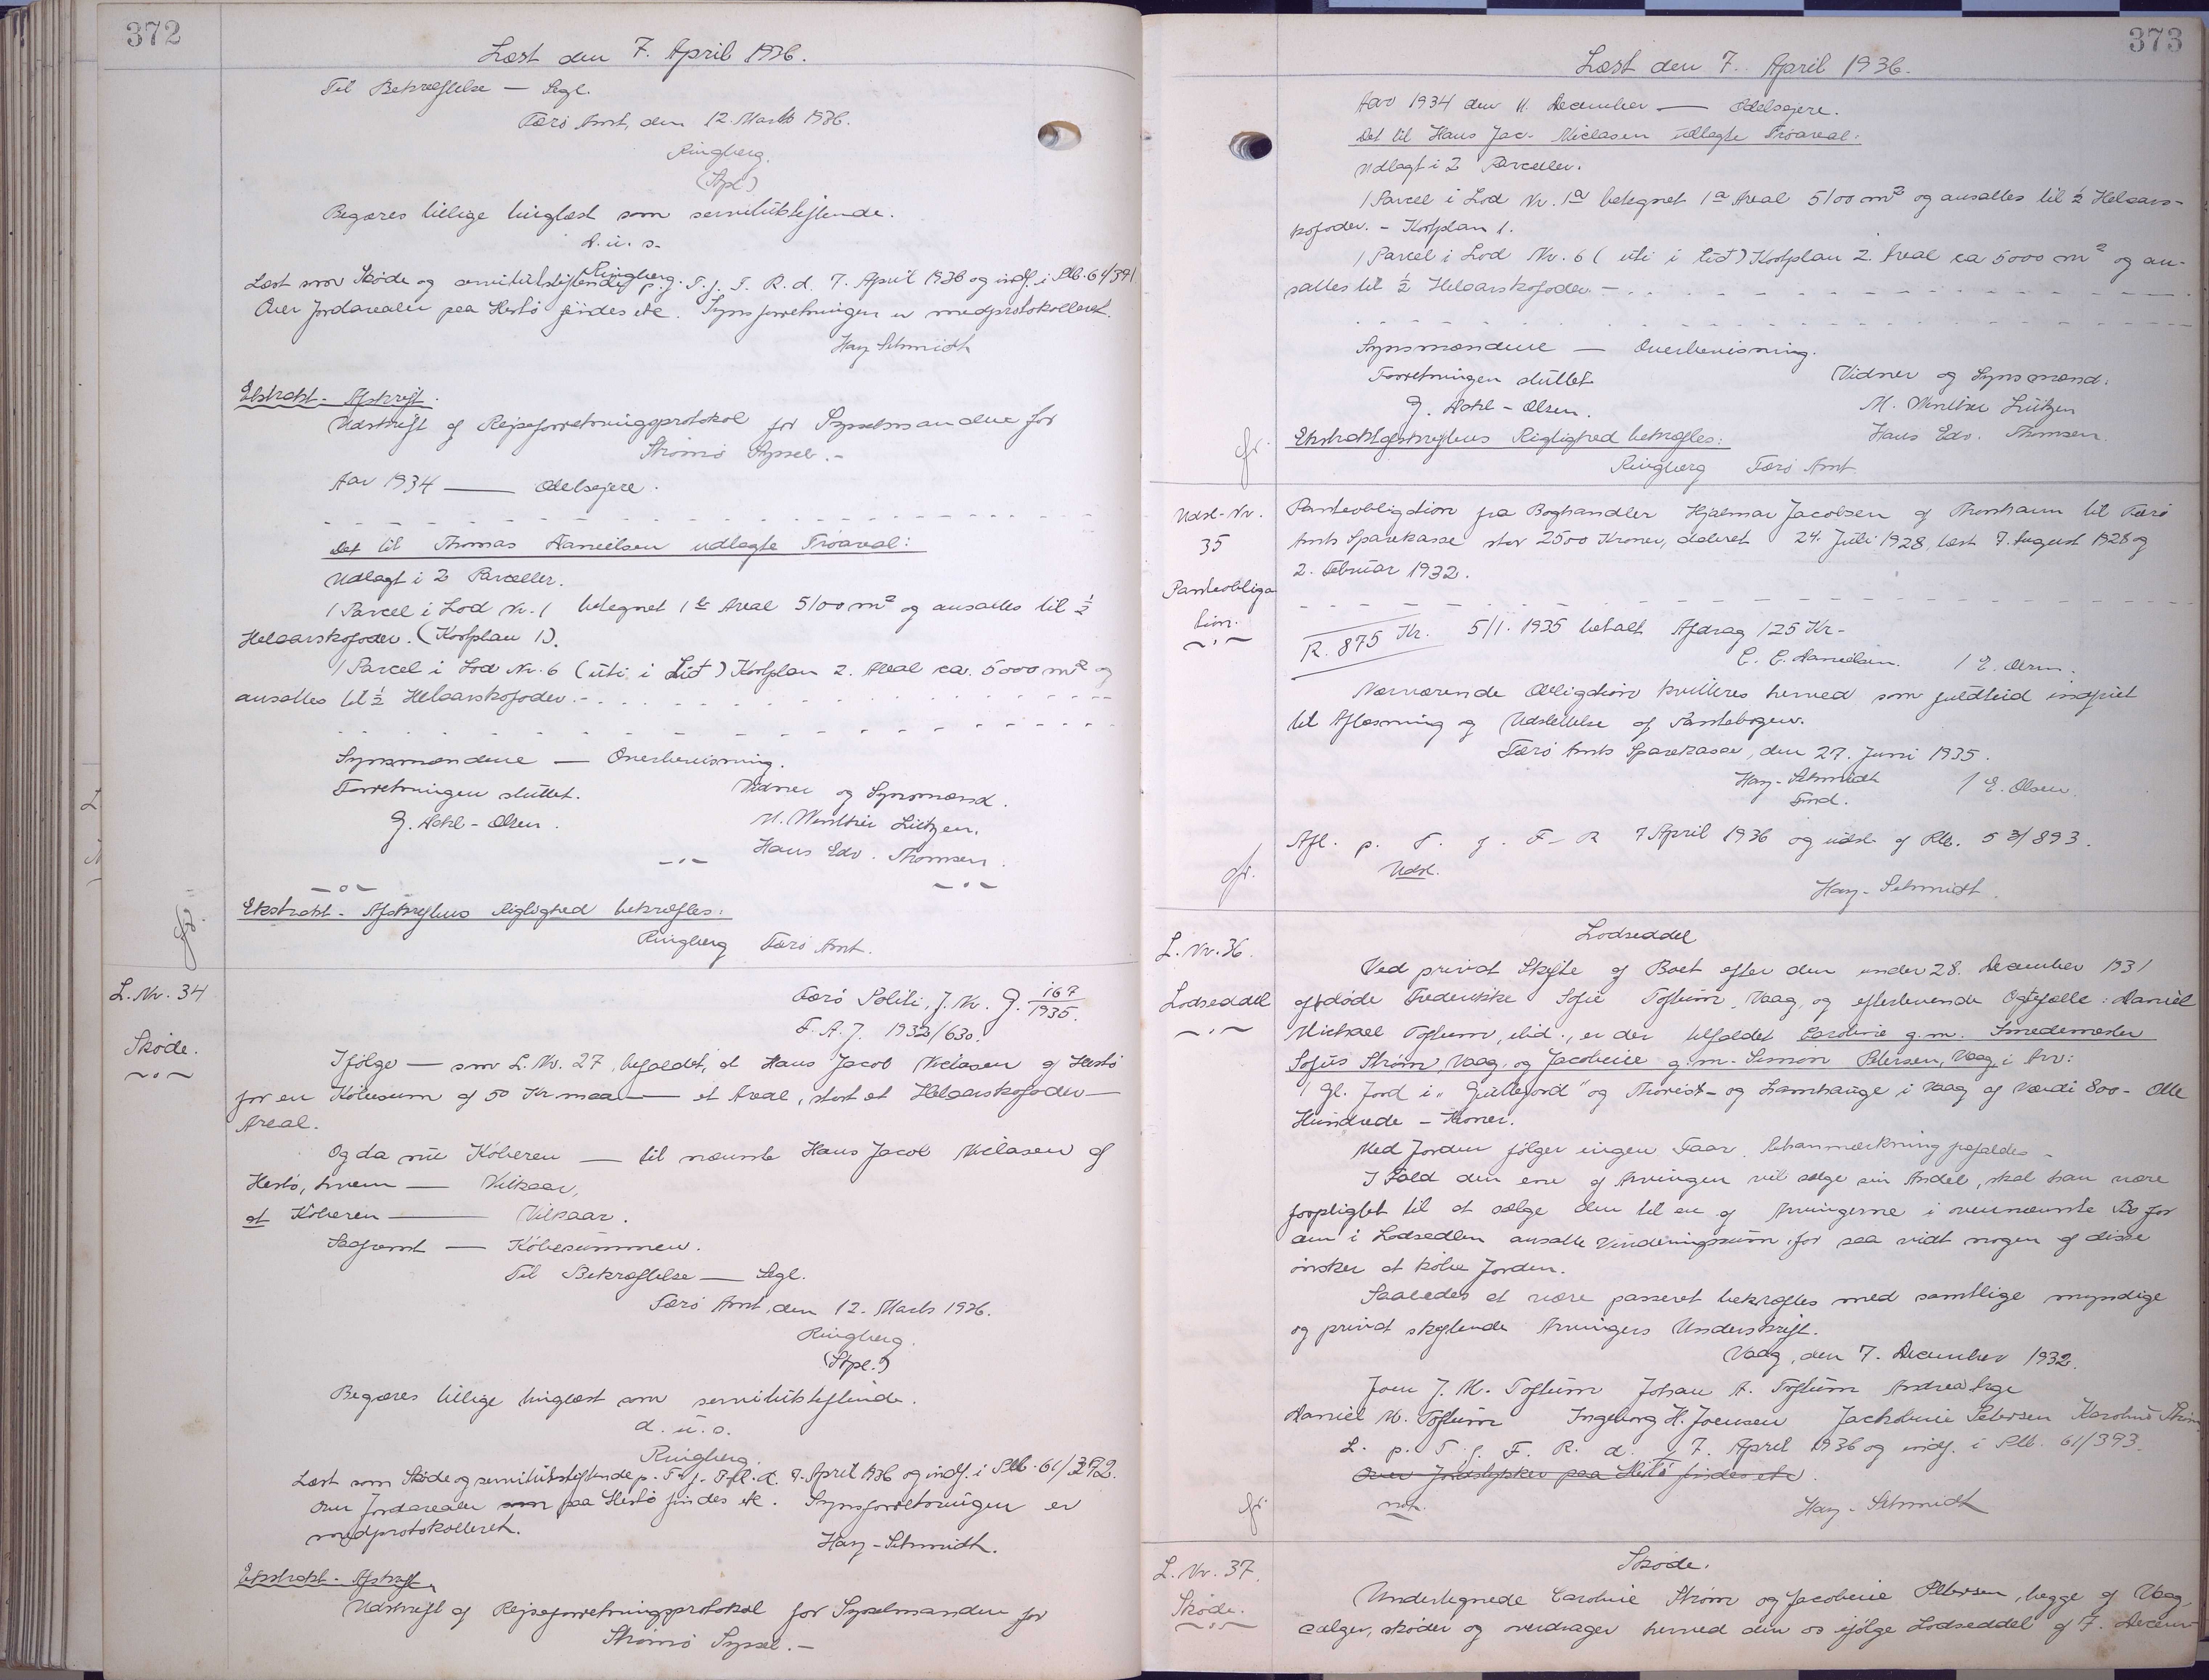 372
Læst den 7. April 1936.
Til Bekræftelse — Segl.
Færø Amt, den 12. Marts 1936.
Ringberg.
(Stpl.)
Begæres tillige tinglæst som servitutstiftende.
D. u. s.
Ringberg.
Læst som Skøde og servitutstiftende p. F. j. F. R. d. 7. April 1936 og indf. i Plb. 61/391
Over Jordarealer paa Hestø findes etc. Synsforretningen er medprotokolleret.
Hay-Schmidt
Ekstrakt-Afskrift.
Udskrift af Rejseforretningsprotokol for Sysselmanden for
Strømø Syssel.-
Aar 1934 — Odelsejere.
Det til Thomas Danielsen udlagte Trøareal:
Udlagt i 2 Parceller.
1 Parcel i Lod Nr. 1 betegnet 1 Areal 5100 m² og ansættes til ½
Helaarskofoder. (Kortplan 1).
1 Parcel i Lod Nr. 6 (uti i Lið) Kortplan 2. Areal ca. 5000 m² og
ansættes til ½ Helaarskofoder.-
Synsmændene — Overbevisning.
Forretningen sluttet. Vidner og Synsmænd.
G. Dahl-Olsen. M. Winther Lützen.
Hans Edv. Thomsen.
Ekstrakt-Afskriftens Rigtighed bekræftes:
Ringberg Færø Amt.
L. Nr. 34
Skøde.
Færø Politi, J. Nr. G. 167/1935.
F. A. J. 1932/630.
Ifølge — som L. Nr. 27, befoldet, at Hans Jacob Niclasen af Hestø
for en Købesum af 50 Kr. maa — et Areal, stort et Helaarskofoder —
Areal.
Og da nu Køberen — til nævnte Hans Jacob Niclasen af
Hestø, hvem — Vilkaar,
at Køberen — Vilkaar.
Saafremt — Købesummen.
Til Bekræftelse — Segl.
Færø Amt, den 12. Marts 1936.
Ringberg.
(Stpl.)
Begæres tillige tinglæst som servitutstiftende.
d. u. s.
Ringberg.
Læst som Skøde og servitutstiftende p. F. j. F. R. d. 7. April 1936 og indf. i Plb. 61/392.
Over Jordarealer paa Hestø findes etc. Synsforretningen er
medprotokolleret.
Hay-Schmidt.
Ekstrakt-Afskrift.
Udskrift af Rejseforretningsprotokol for Sysselmanden for
Strømø Syssel.-
373
Læst den 7. April 1936.
Aar 1934 den 11. December — Odelsejere.
Det til Hans Jac. Niclasen udlagte Trøareal:
Udlagt i 2 Parceller.
1 Parcel i Lod Nr. 1a betegnet 1a Areal 5100 m² og ansættes til ½ Helaars-
kofoder. - Kortplan 1.
1 Parcel i Lod Nr. 6 (uti i Lið) Kortplan 2. Areal ca 5000 m² og an-
sættes til ½ Helaarskofoder -
Synsmændene — Overbevisning.
Forretningen sluttet. Vidner og Synsmænd.
G. Dahl-Olsen. M. Winther Lützen
Hans Edv. Thomsen.
Ekstraktafskriftens Rigtighed bekræftes:
Ringberg Færø Amt.
Udsl-Nr.
35
Pantobliga
tion.
Pantobligation fra Boghandler Hjalmar Jacobsen af Thorshavn til Færø
Amts Sparekasse stor 2500 Kroner, dateret 24. Juli 1928, læst 7. August 1928 og
2. Februar 1932.
R. 875 Kr. 5/1. 1935 betalt Afdrag 125 Kr-
C. C. Danielsen. / E. Olsen.
Nærværende Obligation kvitteres herved som fuldtud indfriet
til Aflæsning og Udslettelse af Pantebogen.
Færø Amts Sparekasse, den 27. Juni 1935.
Hay-Schmidt / E. Olsen
Fmd.
Afl. p. F. j. F. R 7 April 1936 og udsl. af Plb. 53/893.
Udsl.
Hay-Schmidt.
L. Nr. 36.
Lodseddel
Lodseddel
Ved privat Skifte af Boet efter den under 28. December 1931
afdøde Frederikke Sofie Toftum, Vaag, og efterlevende Ægtefælle: Daniel
Michael Toftum, ibid., er der tilfaldet Caroline g.m. Smedemester
Sofus Strøm, Vaag, og Jacobine g.m. Simon Petersen, Vaag, i Arv:
1 Gl. Jord i og Lamhauge i Vaag af Værdi 800 - Otte
Hundrede - Kroner.
Med Jorden følger ingen Faar.
I Fald den ene af Arvingen vil sælge sin Andel, skal han være
forpligtet til at sælge den til en af Arvingerne i ovennævnte Bo for
den i Lodsedlen ansatte Vurderingssum, for saa vidt nogen af disse
ønsker at købe Jorden.
Saaledes at være passeret bekræftes med samtlige myndige
og privat skiftende Arvingers Underskrift.
Vaag, den 7. December 1932.
Joen J. M. Toftum Johan A. Toftum Andrea
Daniel M. Toftum Ingeborg H. Joensen Jackobine Petersen Karoline Strøm
L. p. F. j. F. R. d. 7. April 1936 og indf. i Plb. 61/393.
Over Jordstykker paa Hestø findes etc.
not.
Hay-Schmidt
L. Nr. 37.
Skøde.
Skøde.
Undertegnede Caroline Strøm og Jacobine Petersen, begge af Vaag,
sælger, skøder og overdrager herved den os ifølge Lodseddel af 7. Decem-